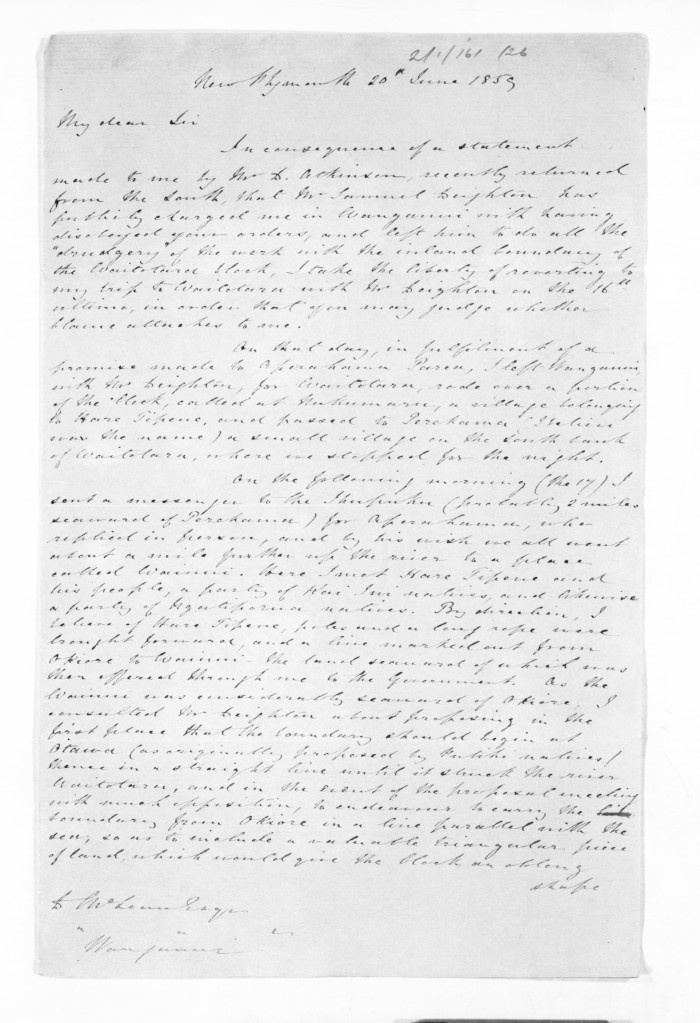 2/1/161 (26
New Plymouth 20th June 1859
My dear Sir
In consequence of a statement
made to me by Mr D. Atkinson, recently returned
from the South, that Mr Samuel Deighton has
publicly charged me in Wanganui with having
disobeyed your orders, and left him to do all the
"drudgery" of the work with the inland boundary of
the Waitotara block, I take the liberty of reverting to
my trip to Waitotara with Mr Deighton on the 16th
ultimo, in order that you may judge whether
blame attaches to me.
On that day, in fulfilment of a
promise made to Aperahama Parea, I left Wanganui,
with Mr Deighton, for Waitotara, rode over a portion
of the Block, called at Nukumaru, a village belonging
to Hare Tipene, and passed to Perekama (I believe
was the name) a small village on the South bank
of Waitotara, where we stopped for the night.
On the following morning (the 17) I
sent a messenger to the Ihupuku (probably 2 miles
seaward of Perekama) for Aperahama, who
replied in person, and by his wish we all went
about a mile further up the river to a place
called Wainui. Here I met Hare Tipene and
his people, a party of Kai Iwi natives, and likewise
a party of Ngatiporua natives. By direction, I
believe of Hare Tipene, poles and a long rope were
brought forward, and a line marked out from
Okiore to Wainui. The land seaward of which was
then offered through me to the Government. As the
Wainui was considerably seaward of Okiore, I
consulted Mr Deighton about proposing in the
first place that the boundary should begin at
Otawa (as originally proposed by Putiki natives)
thence in a straight line until it struck the river
Waitotara, and in the event of the proposal meeting
with much opposition, to endeavour to carry the
boundary from Okiore in a line parallel with the
sea, so as to include a valuable triangular piece
of land, which would give the Block an oblong
shape
D McLean Esqre
"Wanganui"